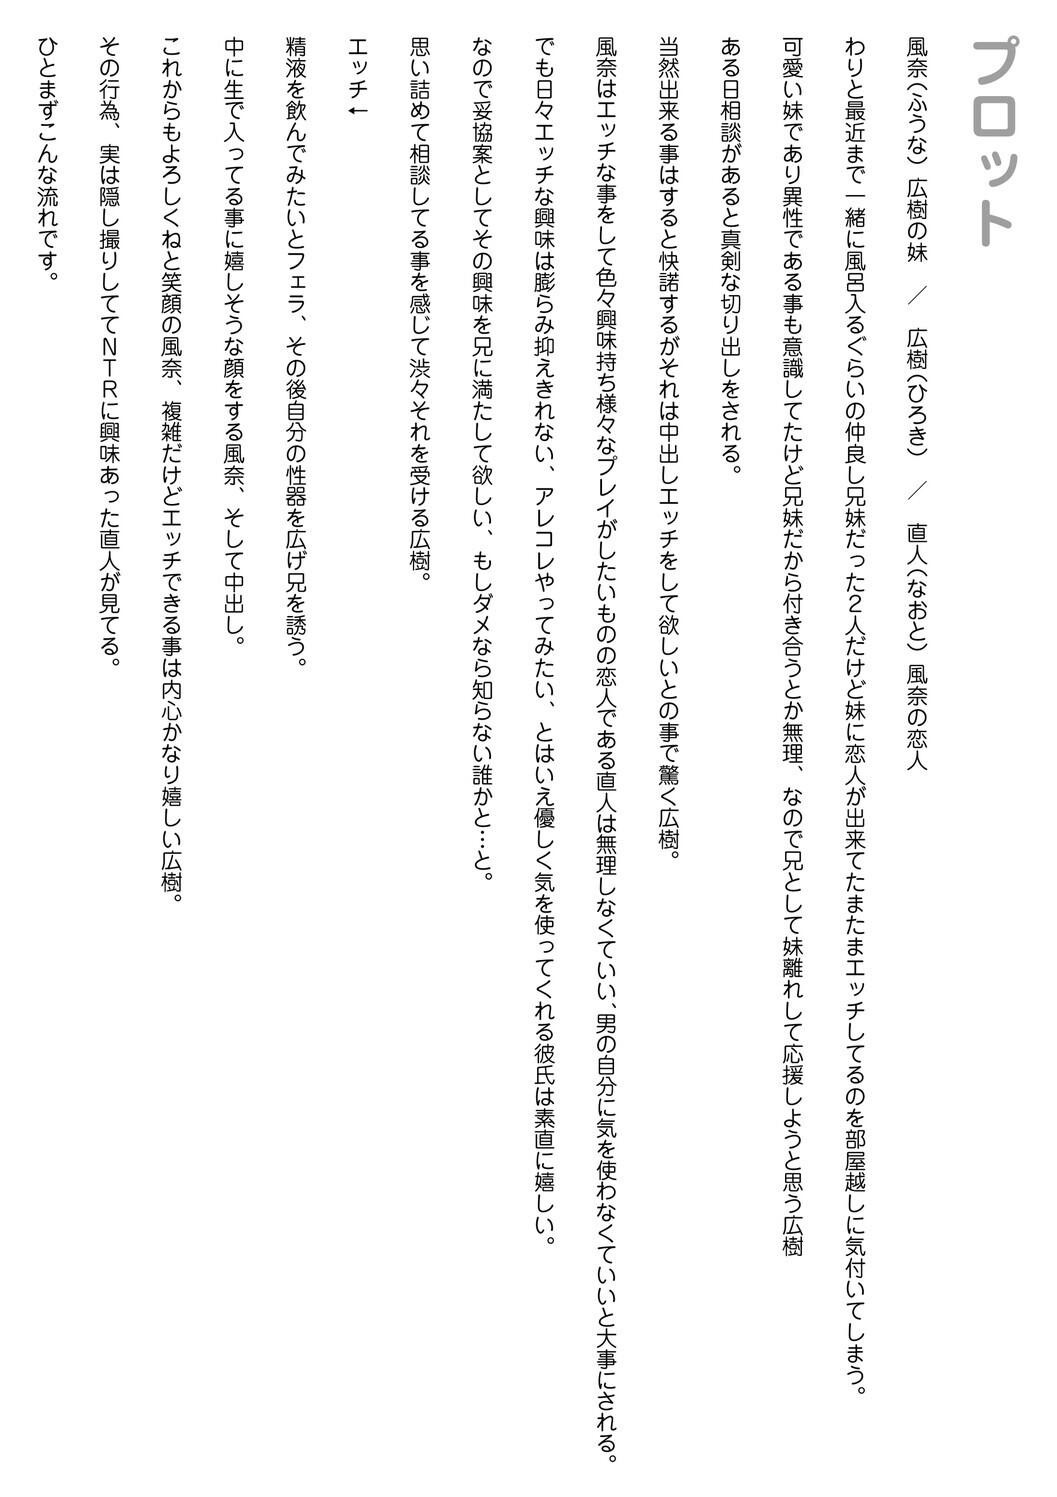 プロット
風奈（ふうな）広樹の妹　／　広樹（ひろき）　／　直人（なおと）風奈の恋人
わりと最近まで一緒に風呂入るぐらいの仲良し兄妹だった２人だけど妹に恋人が出来てたまたまエッチしてるのを部屋越しに気付いてしまう。
可愛い妹であり異性である事も意識してたけど兄妹だから付き合うとか無理、なので兄として妹離れして応援しようと思う広樹
ある日相談があると真剣な切り出しをされる。
当然出来る事はすると快諾するがそれは中出しエッチをして欲しいとの事で驚く広樹。
風奈はエッチな事をして色々興味持ち様々なプレイがしたいものの恋人である直人は無理しなくていい、男の自分に気を使わなくていいと大事にされる。
でも日々エッチな興味は膨らみ抑えきれない、アレコレやってみたい、とはいえ優しく気を使ってくれる彼氏は素直に嬉しい。
なので妥協案としてその興味を兄に満たして欲しい、もしダメなら知らない誰かと…と。
思い詰めて相談してる事を感じて渋々それを受ける広樹。
エッチ←
精液を飲んでみたいとフェラ、その後自分の性器を広げ兄を誘う。
中に生で入ってる事に嬉しそうな顔をする風奈、そして中出し。
これからもよろしくねと笑顔の風奈、複雑だけどエッチできる事は内心かなり嬉しい広樹。
その行為、実は隠し撮りしててＮＴＲに興味あった直人が見てる。
ひとまずこんな流れです。